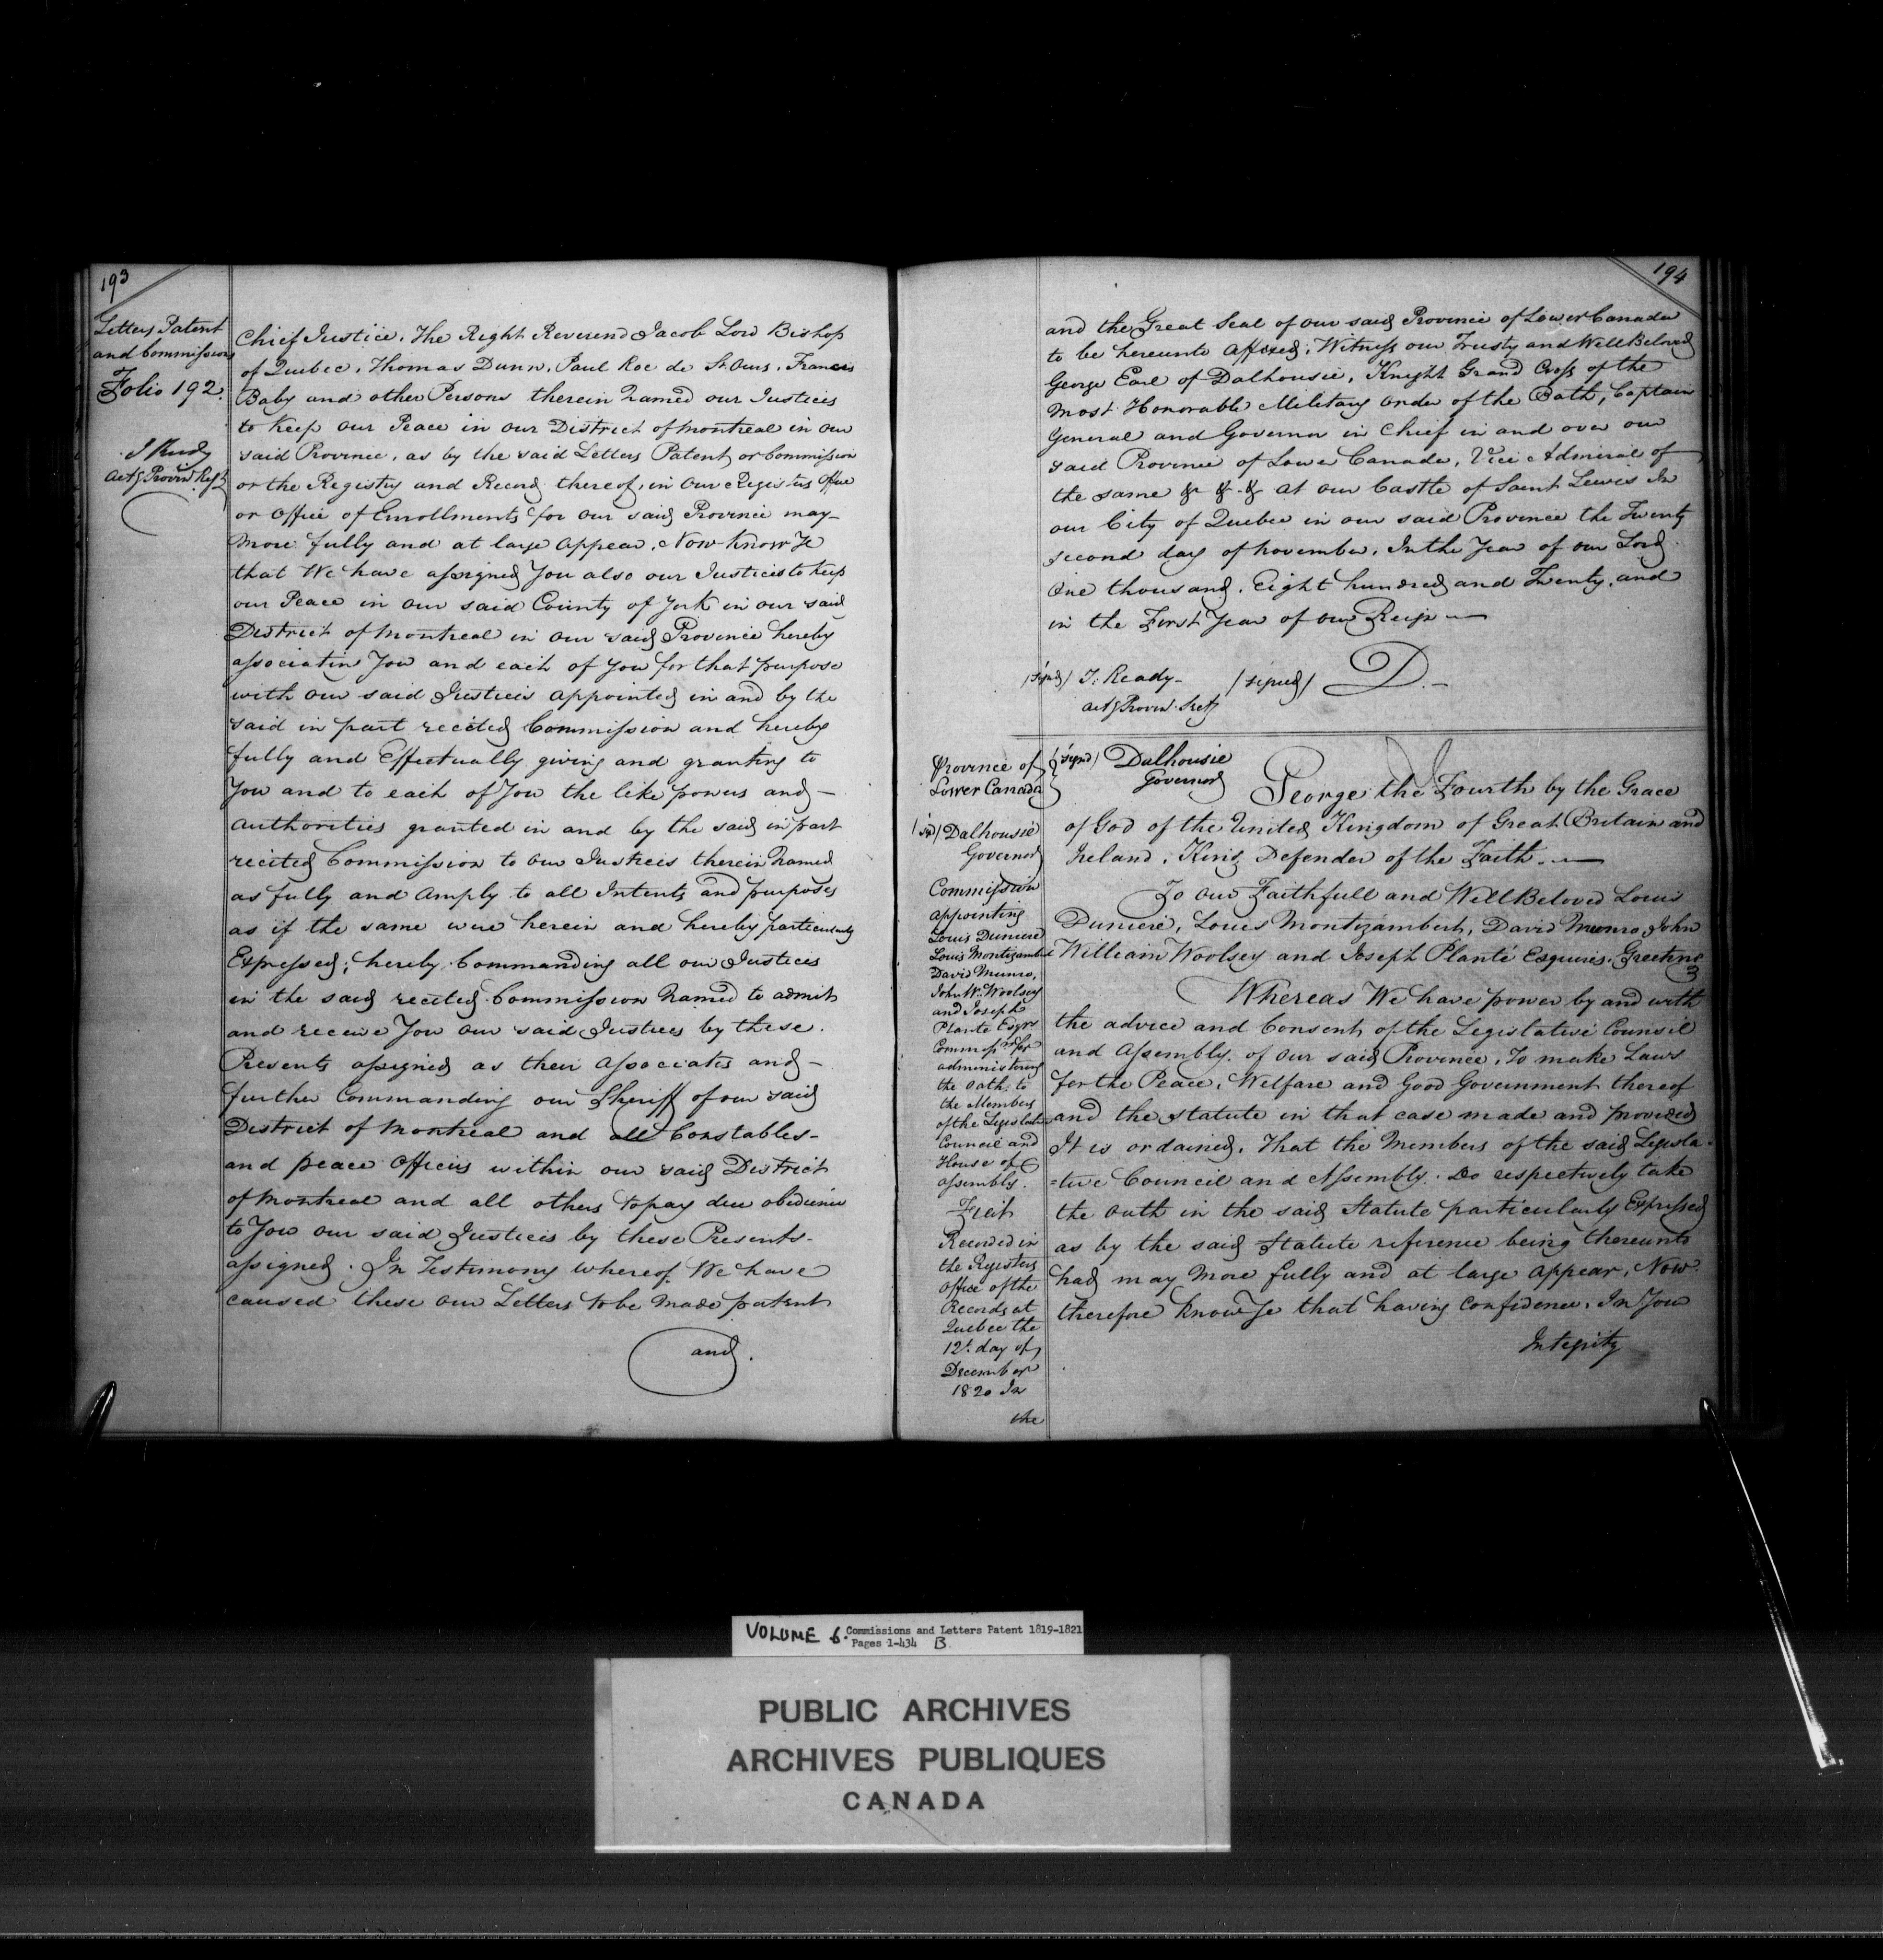 193
Letters Patent
and Commissions
Folio 192.
J Ready
Actg Provin. Regr
Chief Justice, The Right Reverend Jacob Lord Bishop
of Quebec, Thomas Dunn, Paul Roc de St. Ours, Francis
Baby and other Persons therein Named our Justices
to Keep our Peace in our District of Montreal in our
said Province, as by the said Letters Patent or Commission
or the Registry and Record thereof, in Our Registers Office
or Office of Enrollments for our said Province may—
More fully and at large Appear, Now Know Ye
that We have assigned You also our Justices to Keep
our Peace in our said County of York in our said
District of Montreal in our said Province hereby
associatin You and each of You for that purpose
with our said Justices appointed in and by the
said in part recited Commission and hereby
fully and Effectually giving and granting to
You and to each of You the like powers and—
Authorities granted in and by the said in part
recited Commission to our Justices therein Named
as fully and Amply to all Intents and purposes
as if the same were herein and hereby particularly
Expressed; hereby Commanding all our Justices
in the said recited Commission Named to admit
and receive You our said Justices by these.
Presents assigned as their Associates and—
further Commanding our Sheriff of our said
District of Montreal and all Constables-
and peace Officers within our said District
of Montreal and all others to pay due obedience
to You our said Justices by these Presents-
assigned. In Testimony whereof We have
caused these our Letters to be Made patent
and.
194
and the Great Seal of our said Province of Lower Canada
to be hereunto Affixed; Witness our Trusty and Well Beloved
George Earl of Dalhousie, Knight Grand Cross of the
Most Honorable Military Order of the Bath, Captain
General and Governor in Chief in and over our
said Province of Lower Canada, Vice Admiral of
the same &c &c &c At our Castle of Saint Lewis In
our City of Quebec in our said Province the Twenty
second day of November, In the Year of our Lord
One thousand, Eight hundred and Twenty, and
in the First Year of our Reign—
/signed/ J: Ready- /signed/ D.—
Actg Provin. Secy
Province of
Lower Canada
/signd/ Dalhousie
Governor
George the Fourth by the Grace
of God of the United Kingdom of Great Britain and
Ireland, King Defender of the Faith.—
To our Faithfull and Well Beloved Louis
Duniere, Louis Montizambert, David Munro, John
William Woolsey and Joseph Planté Esquires. Greeting
Whereas We have power by and with
the advice and Consent of the Legislative Council
and Assembly. of our said Province, To make Laws
for the Peace, Welfare and Good Government thereof
and the statute in that case made and provided
It is ordained, That the Members of the said Legisla-
=tive Council and Assembly. Do respectively take
the Oath in the said Statute particularly Expressed
as by the said Statute reference being thereunto
had may More fully and at large Appear, Now
therefore Know Ye that having Confidence, In Your
Integrity
Dalhousie
Governor
Commission
appointing
Louis Duniere
Louis Montizambert
David Munro,
John Wm Woolsey
and Joseph
Planté Esqrs
Commissrs for
administering
the Oath, to
the Members
of the Legislative
Council and
House of
Assembly.
Fiat
Recorded in
the Registers
Office of the
Records at
Quebec the
12t. day of
December
1820 In
the
VOLUME 6. Commissions and Letters Patent 1819-1821
Pages 1-434 B
PUBLIC ARCHIVES
ARCHIVES PUBLIQUES
CANADA